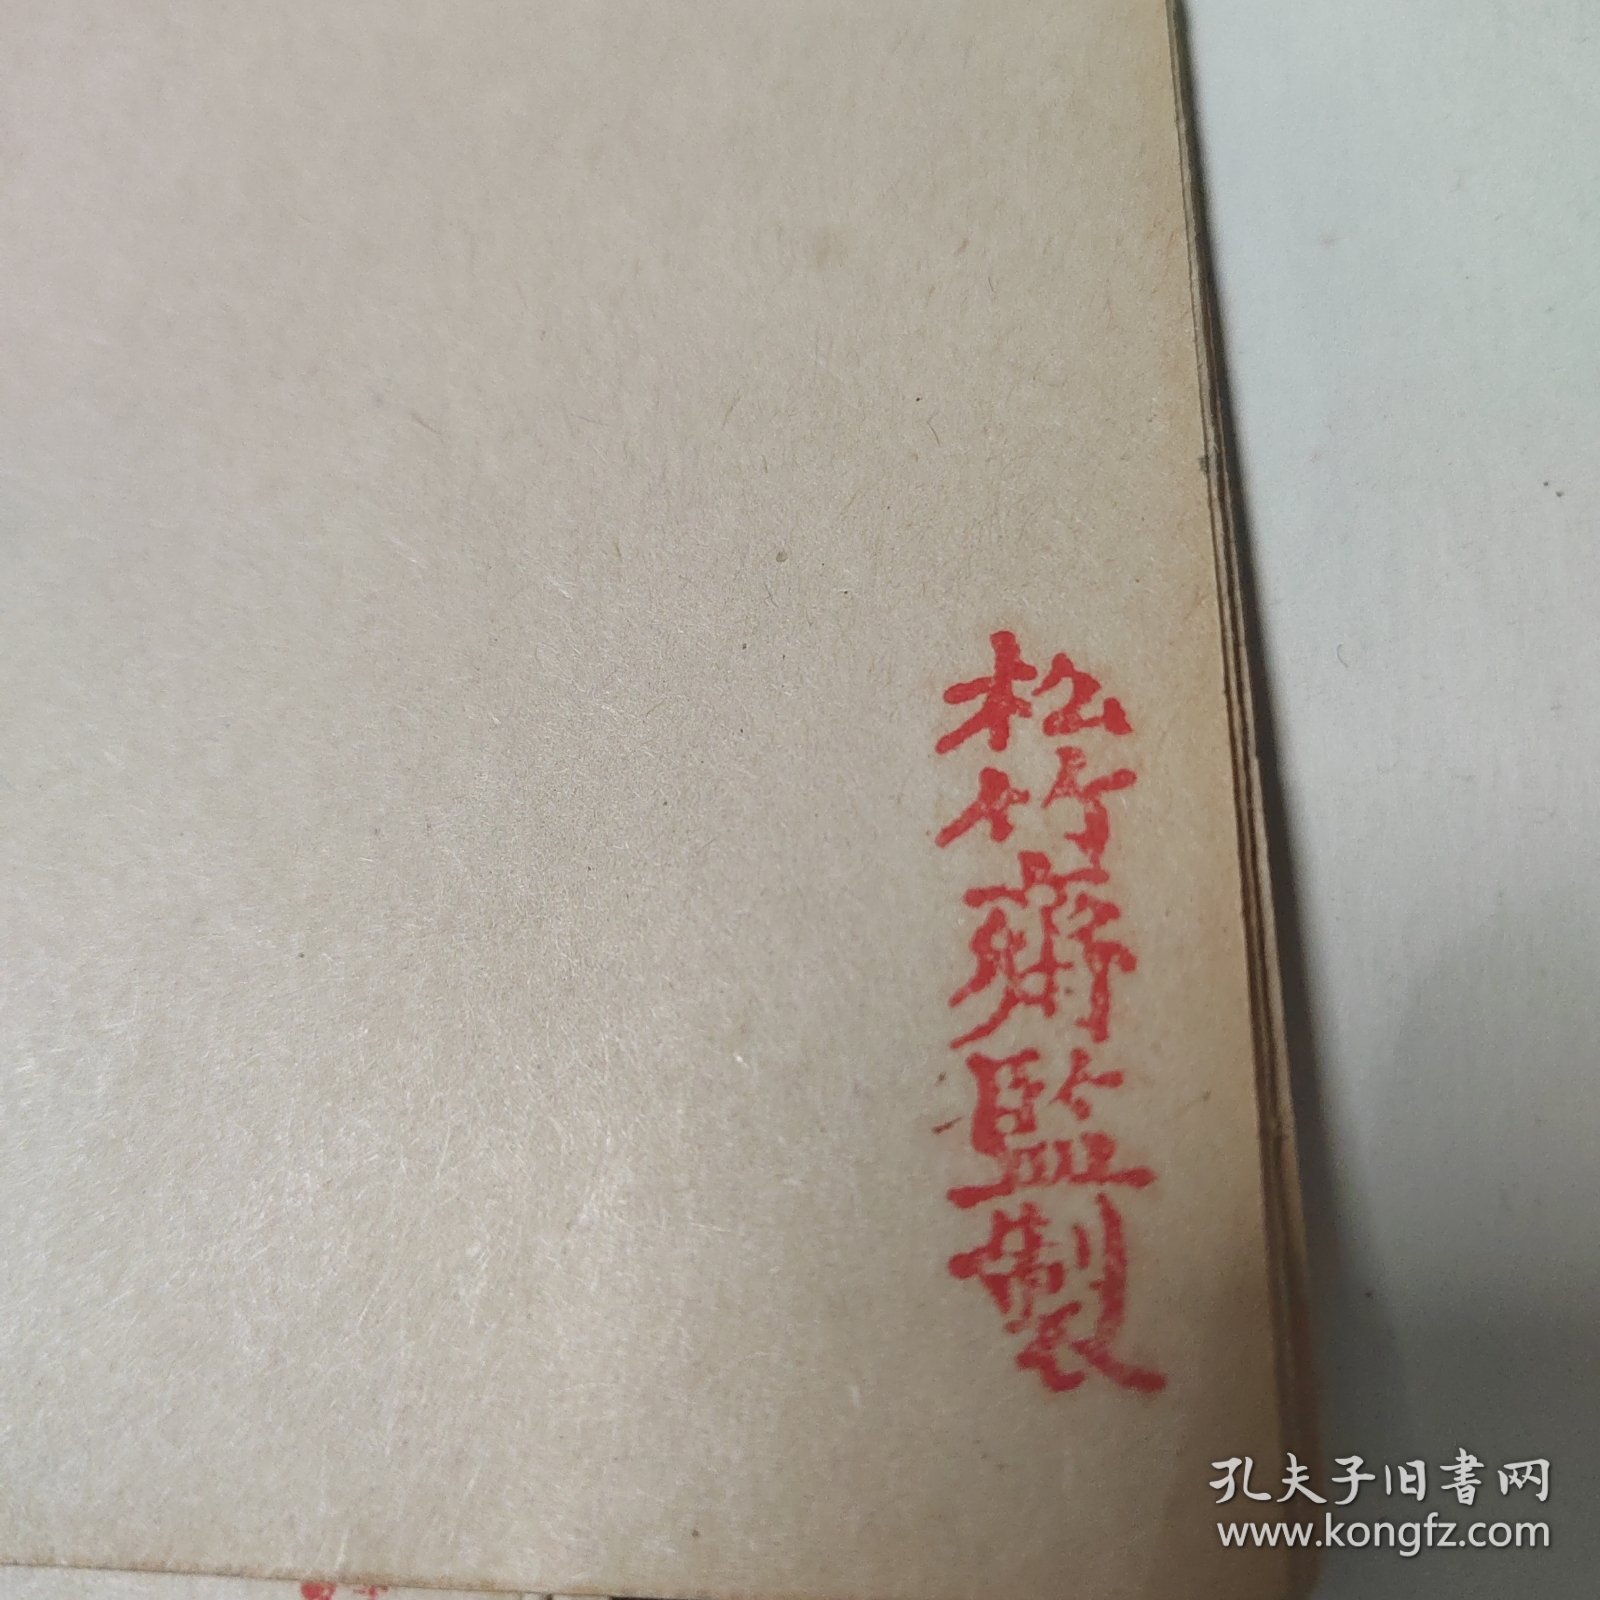 松竹齋監製
孔夫子旧書网
www.kongfz.com